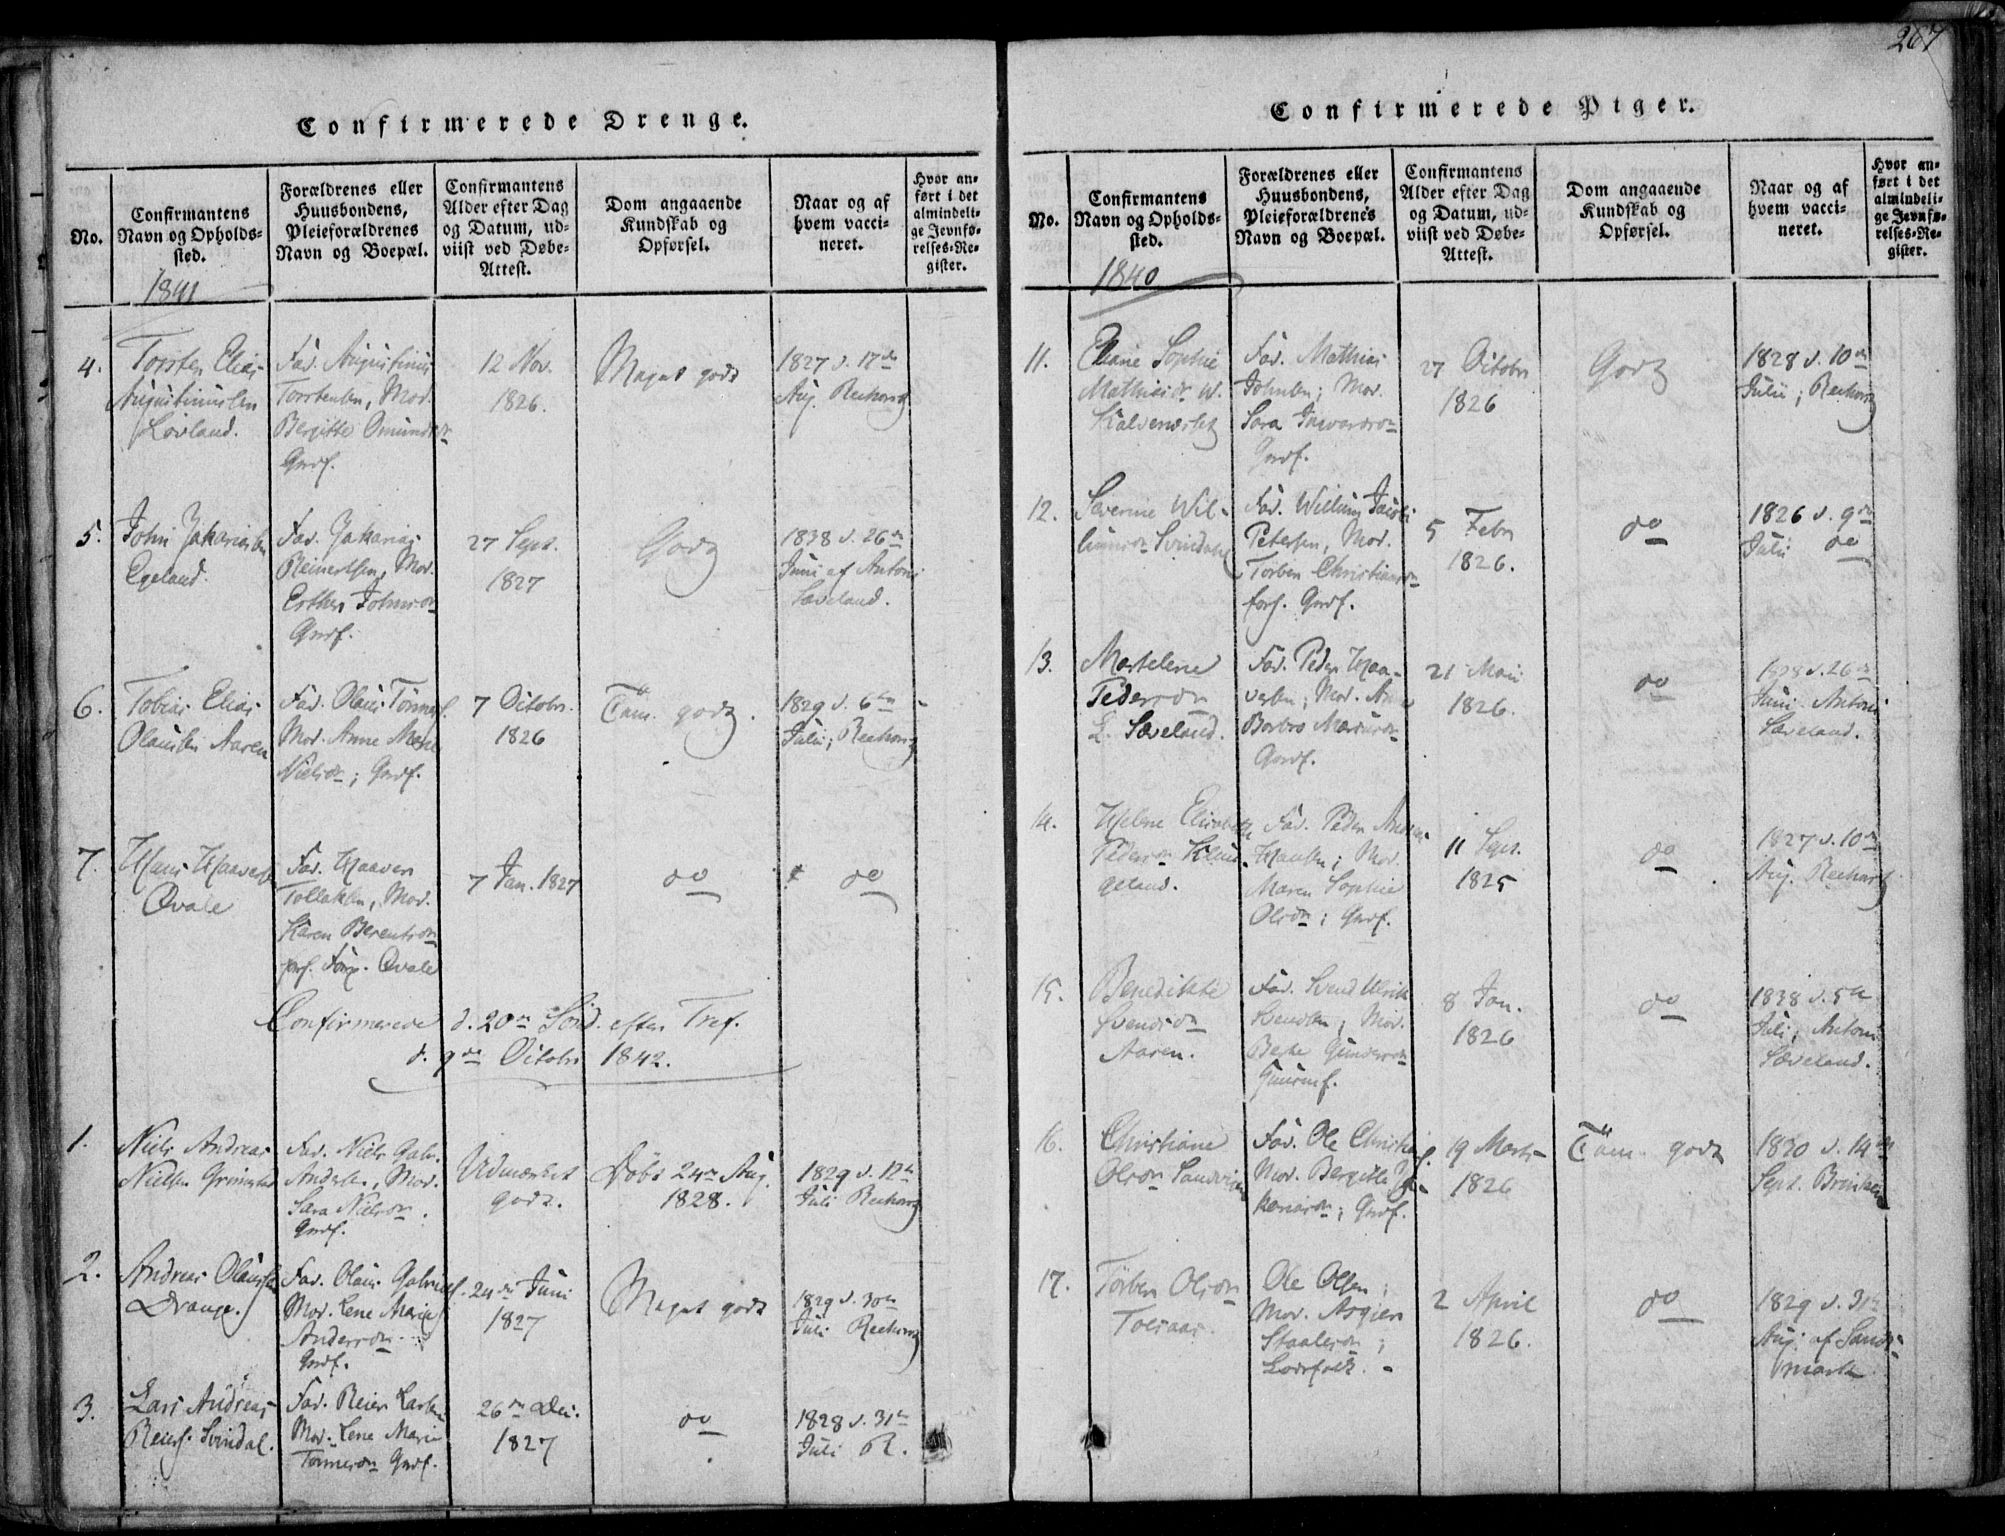 267
Confirmerede Drenge.
No.
Confirmantens
Navn og Opholds-
sted.
Forældrenes eller
Huusbondens,
Pleieforældrenes
Navn og Boepæl.
Confirmantens
Alder efter Dag
og Datum, ud-
viist ved Døbe-
Attest.
Dom angaaende
Kundskab og
Opførsel.
Naar og af
hvem vacci-
neret.
Hvor an-
ført i det
almindeli-
ge Jevnfø-
relses-Re-
gister.
1841
4.
Torsten Elias
Augustinussen
Lovland.
Fad. Augustinus
Torstensen, Mod.
Bergitte Omundsdn
Grdf.
12 Nov.
1826.
Meget godt
1827 d. 17de
Aug. Reehorst
5.
John Zakariasen
Egeland.
Fad. Zakarias
Reinertsen, Mod.
Esther Johnsdn
Grdf.
27 Sept.
1827
Godt
1838 d. 26de
Juni af Antoni
Sæveland.
6.
Tobias Elias
Olaussen Aaren
Fad. Olaus Tønnes.
Mod. Anne Mar.
Nielsdn; Grdf.
7 Octobr.
1826
Tæm. godt.
1829 d. 6te
Julii; Reehorst
7.
Hans Haaversen
Qvale
Fad. Haaver
Tollaksen, Mod.
Karen Berentsdn
Qvale
7 Jan. 1827
do
do
Confirmerede d. 20de Sønd. efter Tref.
d. 9de Octobr 1842.
1.
Niels Andreas
Nielsen Grimestad
Fad. Niels Gabr.
Andersen, Mod.
Sara Nielsdn.
Grdf.
Udmærket
godt.
Døbt 24de Aug.
1828.
1829 d. 12te
Juli Reehorst
2.
Andreas Olaussen
Drange.
Fad. Olaus Gabrielsen.
Mod. Lene Marie
Andersdn.
Grdf.
24de Juni
1827
Meget godt
1829 d. 30te
Juli Reehorst
3.
Lars Andreas
Reiers. Svindal.
Fad. Reier Larsen
Mod. Lene Marie
Tønnesdn Grdf.
26de Dec.
1827
do
1828 d. 31te
Juli R.
Confirmerede Piger.
No.
Confirmantens
Navn og Opholds-
sted.
Forældrenes eller
Huusbondens,
Pleieforældrenes
Navn og Boepæl.
Confirmantens
Alder efter Dag
og Datum, ud-
viist ved Døbe-
Attest.
Dom angaaende
Kundskab og
Opførsel.
Naar og af
hvem vacci-
neret.
Hvor an-
ført i det
almindeli-
ge Jevnfø-
relses-Re-
gister.
1840
11.
Eliane Sophie
Mathiasdn W.
Fad. Mathias
Johnsen; Mod.
Sara Ingvardsdn
Grdf.
27 Octobr
1826
Godt
1828 d. 10de
Julii; Reehorst
12.
Severine Wil-
liumsdn Svindahl
Fad. Willum Jacob
Petersen, Mod.
Torber Christiansdn
forh. Grdf.
5 Febr
1826.
do
1826 d. 9de
Julii do
13.
Martelene
Pedersdn
L. Sæveland.
Fad. Peder Haa-
versen; Mod. Anne
Barbro Mariusdn
Grdf.
21 Mai
1826.
do
1838 d. 26de
Juni Antoni
Sæveland.
14.
Helene Elisabeth
Pedersdn Klun-
geland.
Fad. Peder Andreas
Hansen; Mod.
Maren Sophie
Olsdn; Grdf.
11 Sept.
1825
do
1827 d. 10de
Aug. Reehorst
15.
Benedikte
Svendsdn
Aaren.
Fad. Svend Ulrik
Svendsen; Mod.
Berte Gundersdn
8 Jan.
1826
do
1838 d. 5te
Juli; Antoni
Sæveland.
16.
Christiane
Olsdn Sandvigen
Fad. Ole Christians.
Mod. Bergitte Za-
kariasdn; Grdf.
19 Marts
1826
Tæm. godt
1830 d. 14de
Sept.
17.
Torber Olsdn
Toesaas.
Ole Olsen;
Mod. Asgier
Staalesdn;
2 April
1826.
do
1829 d. 31te
Aug. af Sand-
mark